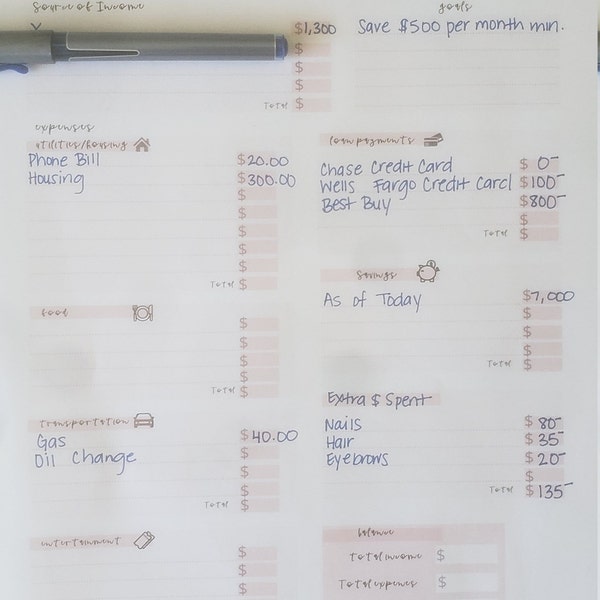 Source of Income
$1,300
$
$
$
Total $
goals
Save $500 per month min.
expenses
utilities/housing
Phone Bill $20.00
Housing $300.00
$
$
$
$
$
Total $
food
$
$
$
Total $
transportation
Gas $40.00
Oil Change $
$
$
Total $
entertainment
$
$
$
loan payments
Chase Credit Card $ 0-
Wells Fargo Credit Card $100-
Best Buy $800-
$
Total $
Savings
As of Today $7,000
$
$
$
Total $
Extra $ Spent
Nails $ 80-
Hair $ 35-
Eyebrows $ 20-
$
Total $135-
balance
Total income $
Total expenses $